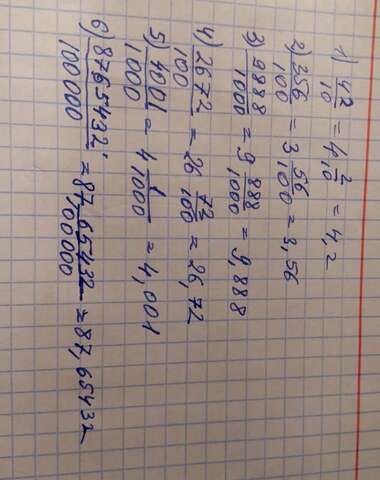 1) 42/10 = 4 2/10 = 4,2
2) 356/100 = 3 56/100 = 3,56
3) 9888/1000 = 9 888/1000 = 9,888
4) 2672/100 = 26 72/100 = 26,72
5) 4001/1000 = 4 1/1000 = 4,001
6) 8765432/100000 = 87 65432/100000 = 87,65432